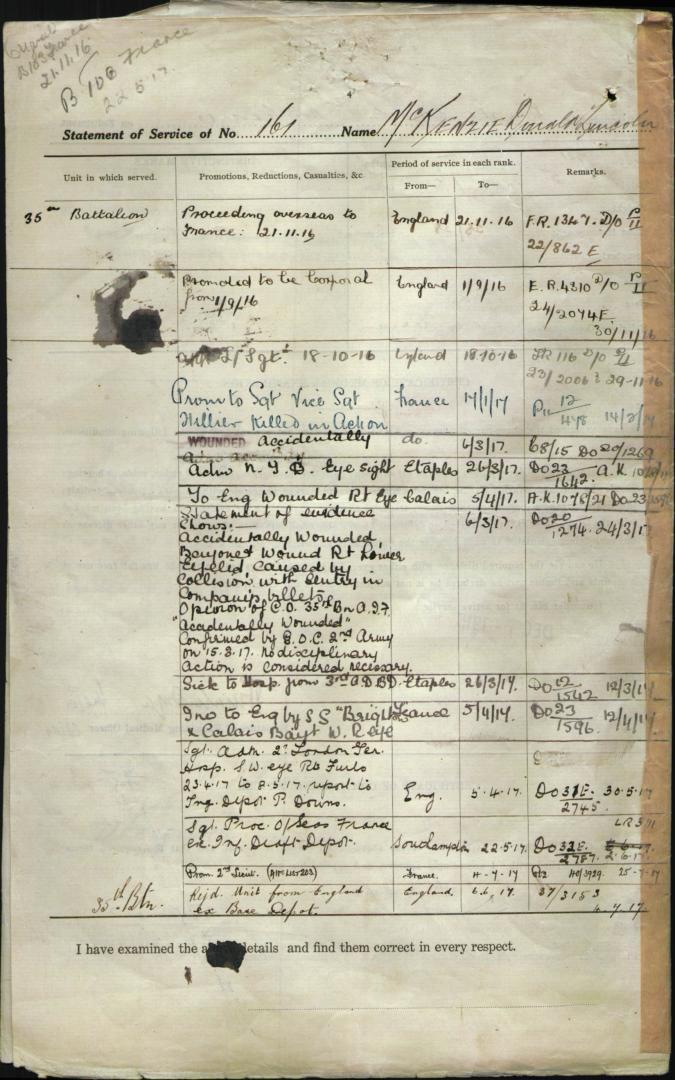 B103 France
21.11.16
B 103 France
22.5.17.
Statement of Service of No. 161 Name McKENZIE Donald Lincoln
Unit in which served. Promotions, Reductions, Casualties, &c Period of service in each rank. Remarks.
From— To—
35th Battalion Proceeding overseas to England 21.11.16 F.R. 1347. D/O P/II
France: 21.11.16 22/862 E
Promoted to be Corporal England 1/9/16 E.R. 4310 D/O P/II
from 1/9/16 24/2074E
30/11/16
L/Sgt. 18-10-16 England 18.10.16 116 D/O P/II
23/2006 29-11-16
Prom to Sgt Vice Sgt France 17/1/17 P11 12/478 14/2/17
Hillier Killed in Action
WOUNDED accidentally do. 6/3/17. C8/15 DO 20/1269
Adm N.Y.D. Eye sight Etaples 26/3/17. DO 23/1642. A.K.
To Eng Wounded Rt Eye Calais 5/4/17. A.K. 1078/21 DO 23
Statement of evidence 6/3/17. DO 20/1274. 24/3/17
Shows:—
Accidentally Wounded,
Bayonet Wound Rt Lower
Eyelid caused by
Collision with Sentry in
Company's billets
Opinion of C.O. 35th Bn A.I.F.
"Accidentally Wounded"
Confirmed by G.O.C. 2nd Army
on 15.3.17. No disciplinary
Action is considered necessary.
Sick to Hosp. from 3rd A.D.B.D. Etaples 26/3/17. DO 12/1542 12/3/17
Inv to Eng by SS "Brighton" France 5/4/17. DO 23/1596. 12/4/17
x Calais Bayt W. R eye
Sgt. Adm. 2nd London Ter.
Hosp. S.W. eye Rt. Furlo
23.4.17 to 8.5.17. report to Eng. 5.4.17. DO 31E. 30.5.17
Trng. Depot P. Downs. 2745.
Sgt. Proc. O/Seas France
ex. Inf. Draft Depot. Southampton 22.5.17. DO 32E. 2787. 2.6.17.
Prom. 2nd Lieut. (AIF List 203) France. 4-7-17 40/3929. 25-7-17
35th Btn. Rejd. Unit from England England. 6.6.17. 37/3153
ex Base Depot. 4.7.17.
I have examined the details and find them correct in every respect.